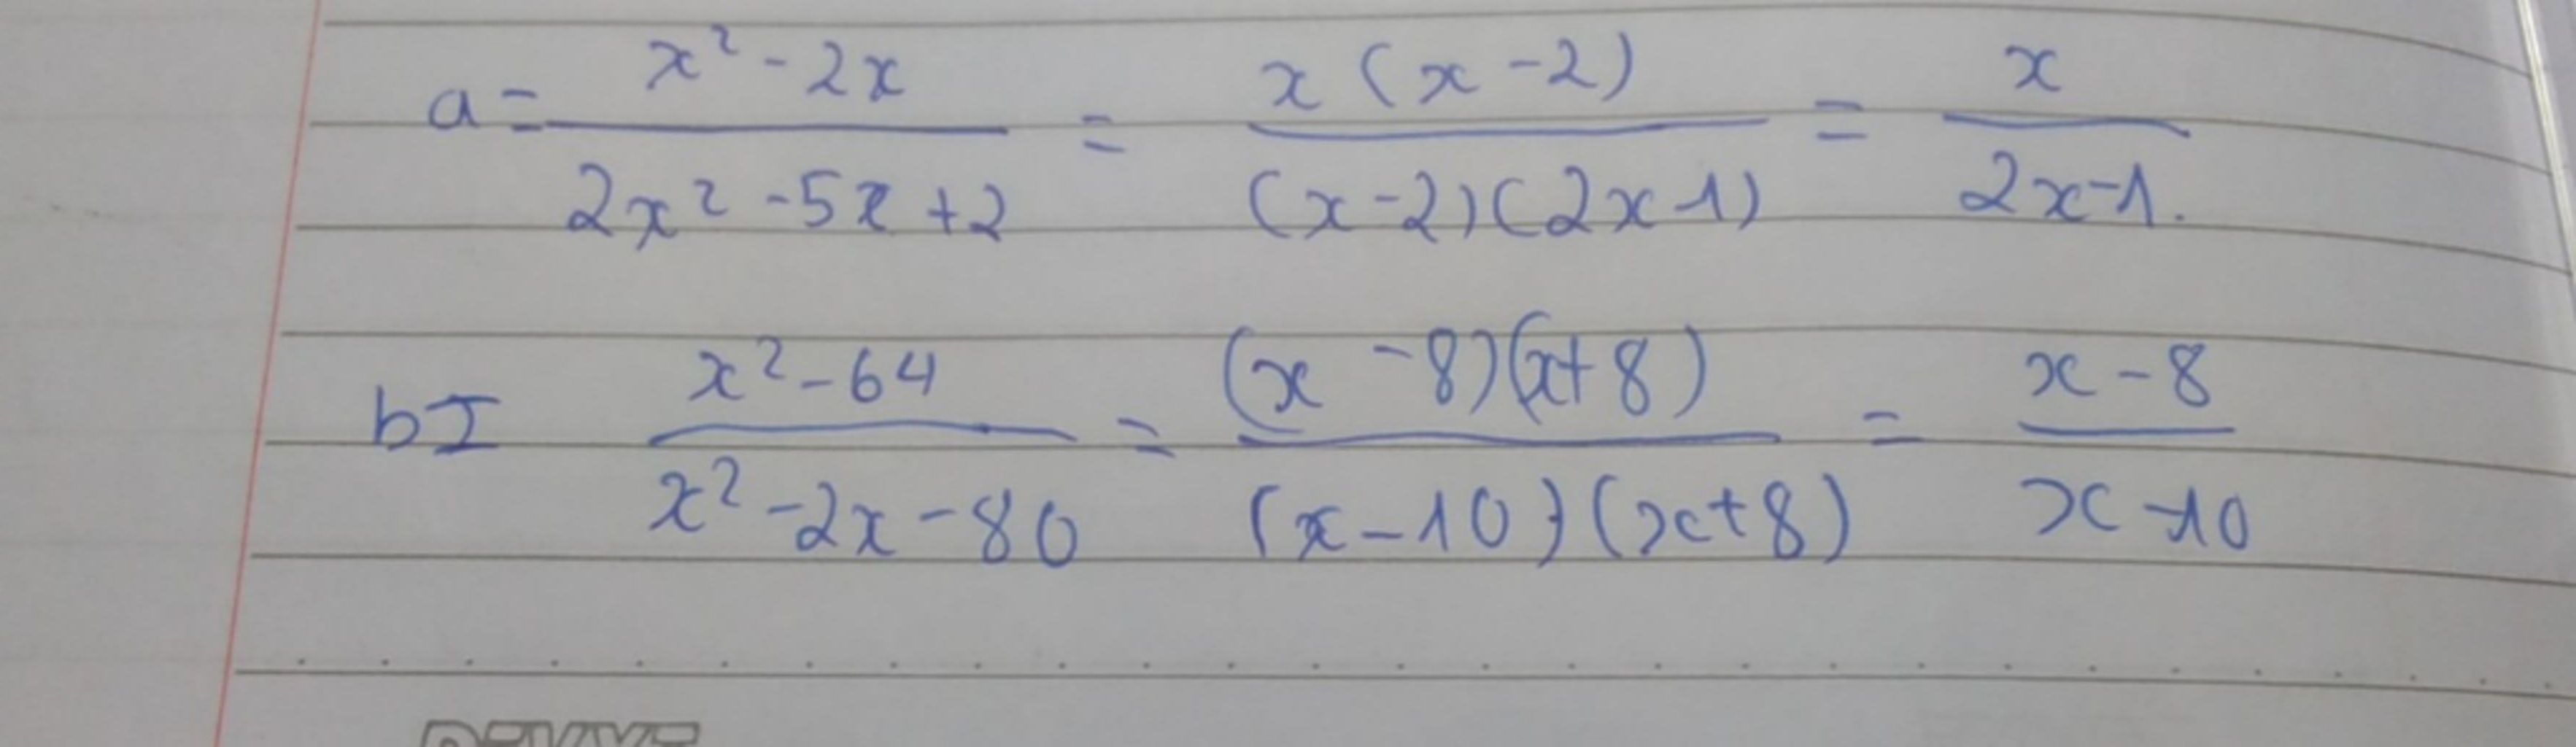 a = x² - 2x / 2x² - 5x + 2 = x (x - 2) / (x - 2)(2x - 1) = x / 2x - 1.
b = x² - 64 / x² - 2x - 80 = (x - 8)(x + 8) / (x - 10)(x + 8) = x - 8 / x - 10